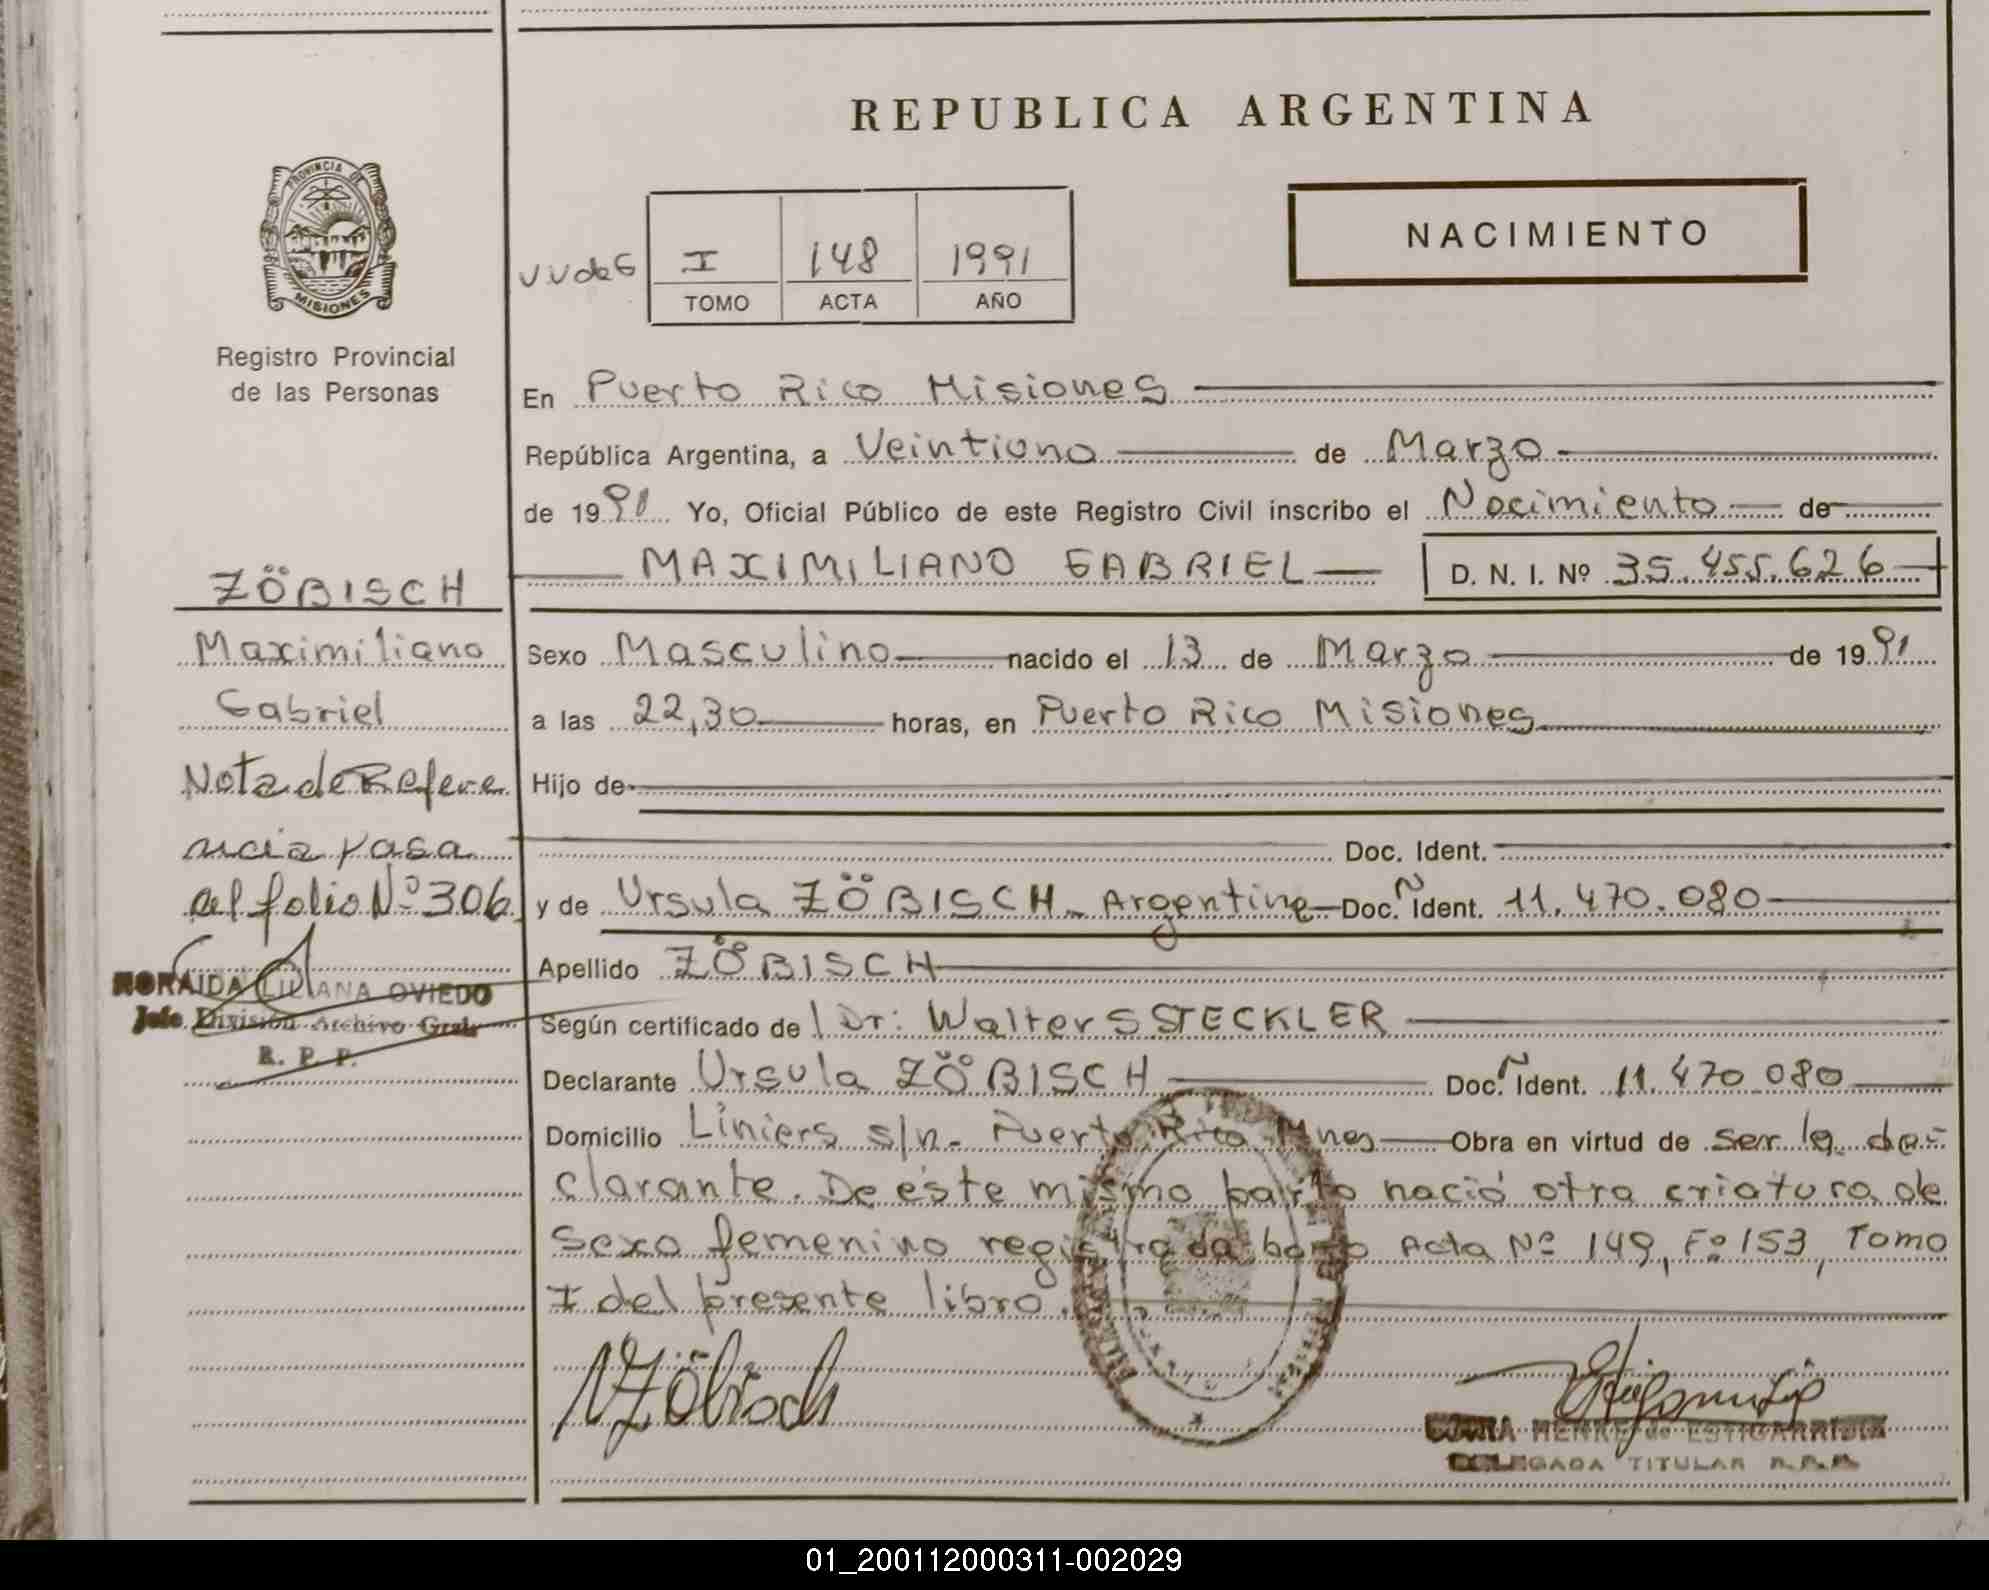 REPUBLICA ARGENTINA
PROVINCIA DE
MISIONES
Registro Provincial
de las Personas
I 148 1991
TOMO ACTA AÑO
NACIMIENTO
En Puerto Rico Misiones
República Argentina, a Veintiuno de Marzo
de 1991 Yo, Oficial Público de este Registro Civil inscribo el Nacimiento de
MAXIMILIANO GABRIEL D. N. I. Nº 35.455.626
ZÖBISCH
Maximiliano
Gabriel
Nota de Refere
ncia pasa
al folio Nº 306
NORAIDA LILIANA OVIEDO
Jefe División Archivo Gral.
R. P. P.
Sexo Masculino nacido el 13 de Marzo de 1991
a las 22,30 horas, en Puerto Rico Misiones
Hijo de
Doc. Ident.
y de Ursula ZÖBISCH - Argentina Doc. Ñ Ident. 11.470.080
Apellido ZÖBISCH
Según certificado de Dr: Walter S STECKLER
Declarante Ursula ZÖBISCH Doc. Ñ Ident. 11.470.080
Domicilio Liniers s/n - Puerto Rico Mnes Obra en virtud de ser la de-
clarante. De éste mismo parto nació otra criatura de
sexo femenino registrada bajo Acta Nº 149, Fº 153, Tomo
I del presente libro.
Zöbisch
HENKE de ESTIGARRIBIA
DELEGADA TITULAR R.P.P.
01_200112000311-002029